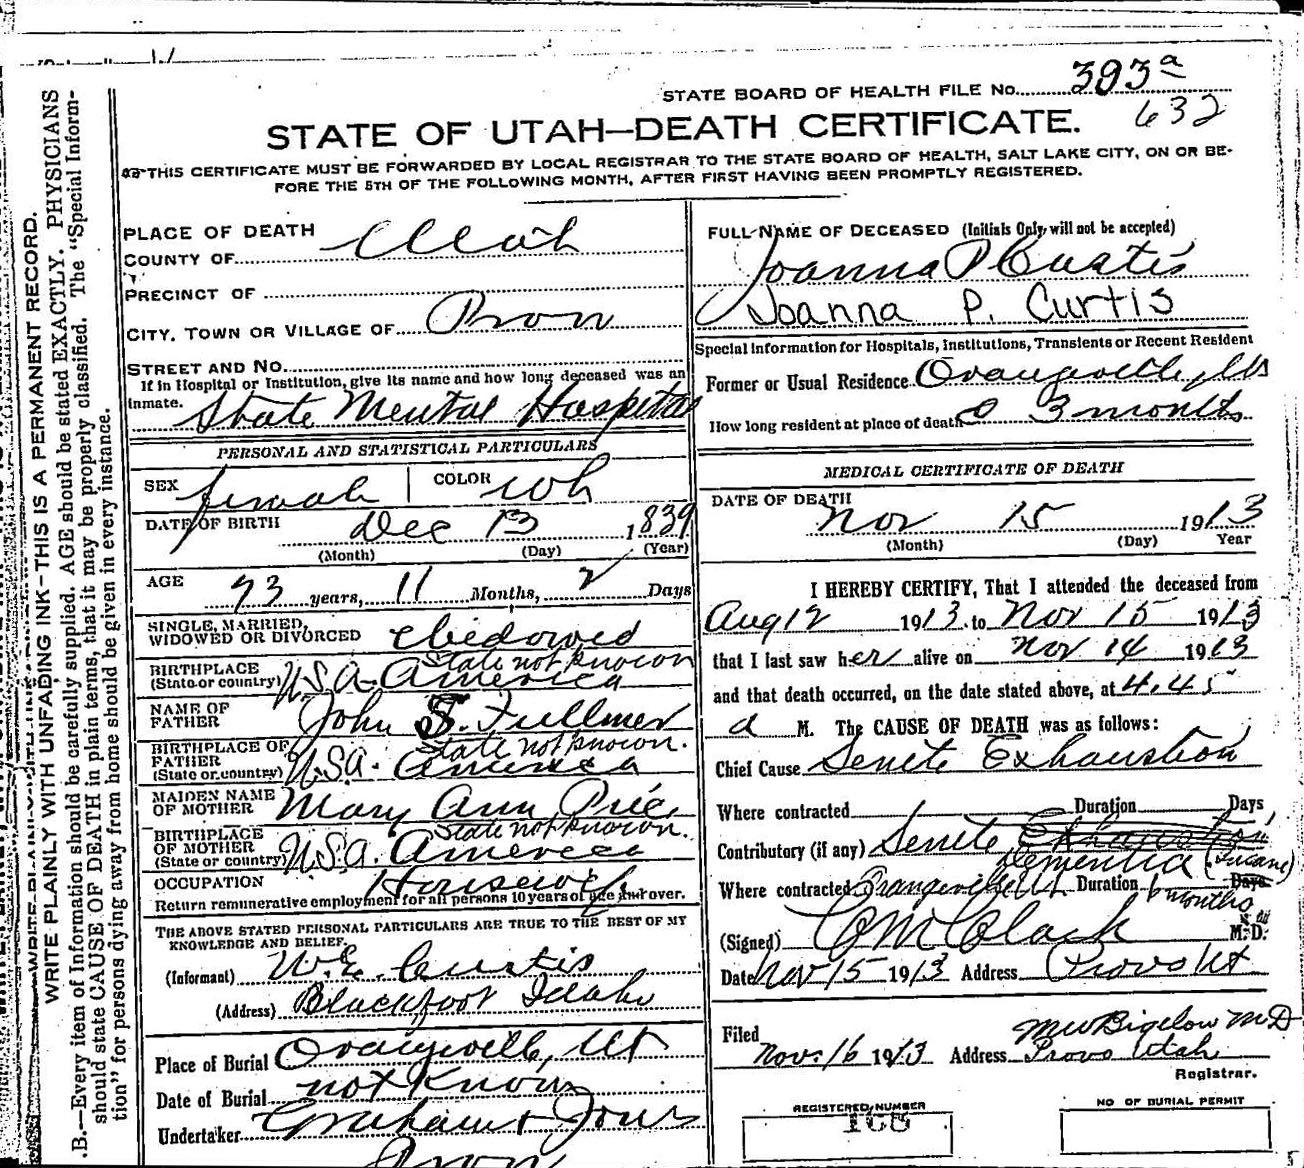 STATE BOARD OF HEALTH FILE No. 393a
632
STATE OF UTAH—DEATH CERTIFICATE.
THIS CERTIFICATE MUST BE FORWARDED BY LOCAL REGISTRAR TO THE STATE BOARD OF HEALTH, SALT LAKE CITY, ON OR BE-
FORE THE 5TH OF THE FOLLOWING MONTH, AFTER FIRST HAVING BEEN PROMPTLY REGISTERED.
WRITE PLAINLY WITH UNFADING INK—THIS IS A PERMANENT RECORD.
.B.—Every item of Information should be carefully supplied. AGE should be stated EXACTLY. PHYSICIANS
should state CAUSE OF DEATH in plain terms, that it may be properly classified. The "Special Inform-
tion" for persons dying away from home should be given in every instance.
PLACE OF DEATH
COUNTY OF Utah
PRECINCT OF
CITY, TOWN OR VILLAGE OF Provo
STREET AND No.
If in Hospital or Institution, give its name and how long deceased was an
inmate. State Mental Hospital
PERSONAL AND STATISTICAL PARTICULARS
SEX female COLOR wh
DATE OF BIRTH Dec 13 1839
(Month) (Day) (Year)
AGE 73 years, 11 Months, 2 Days
SINGLE, MARRIED,
WIDOWED OR DIVORCED Widowed
State not known
BIRTHPLACE
(State or country) U.S.A. America
NAME OF
FATHER John S. Fullmer
State not known.
BIRTHPLACE OF
FATHER
(State or country) U.S.A. America
MAIDEN NAME
OF MOTHER Mary Ann Price
State not known.
BIRTHPLACE
OF MOTHER
(State or country) U.S.A. America
OCCUPATION Housewife
Return remunerative employment for all persons 10 years of age and over.
THE ABOVE STATED PERSONAL PARTICULARS ARE TRUE TO THE BEST OF MY
KNOWLEDGE AND BELIEF.
(Informant) W.E. Curtis
(Address) Blackfoot Idaho
Place of Burial Orangeville, Ut
Date of Burial not Known
Undertaker Graham & Jones
Provo
FULL NAME OF DECEASED (Initials Only will not be accepted)
Joanna P Curtis
Joanna P. Curtis
Special Information for Hospitals, Institutions, Transients or Recent Resident
Former or Usual Residence Orangeville, Ut
How long resident at place of death 3 months
MEDICAL CERTIFICATE OF DEATH
DATE OF DEATH
Nov 15 1913
(Month) (Day) Year
I HEREBY CERTIFY, That I attended the deceased from
Aug 12 1913 to Nov 15 1913
that I last saw her alive on Nov 14 1913
and that death occurred, on the date stated above, at 4.45
a M. The CAUSE OF DEATH was as follows:
Chief Cause Senile Exhaustion
Where contracted Duration Days
Contributory (if any) Senile Exhaustion
dementia (Insane)
Where contracted Orangeville Ut Duration 6 months Days
(Signed) M.D.
Date Nov 15 1913 Address Provo Ut
Filed MW Bigelow M D
Nov. 16 1913 Address Provo Utah
Registrar.
REGISTERED NUMBER
NO OF BURIAL PERMIT